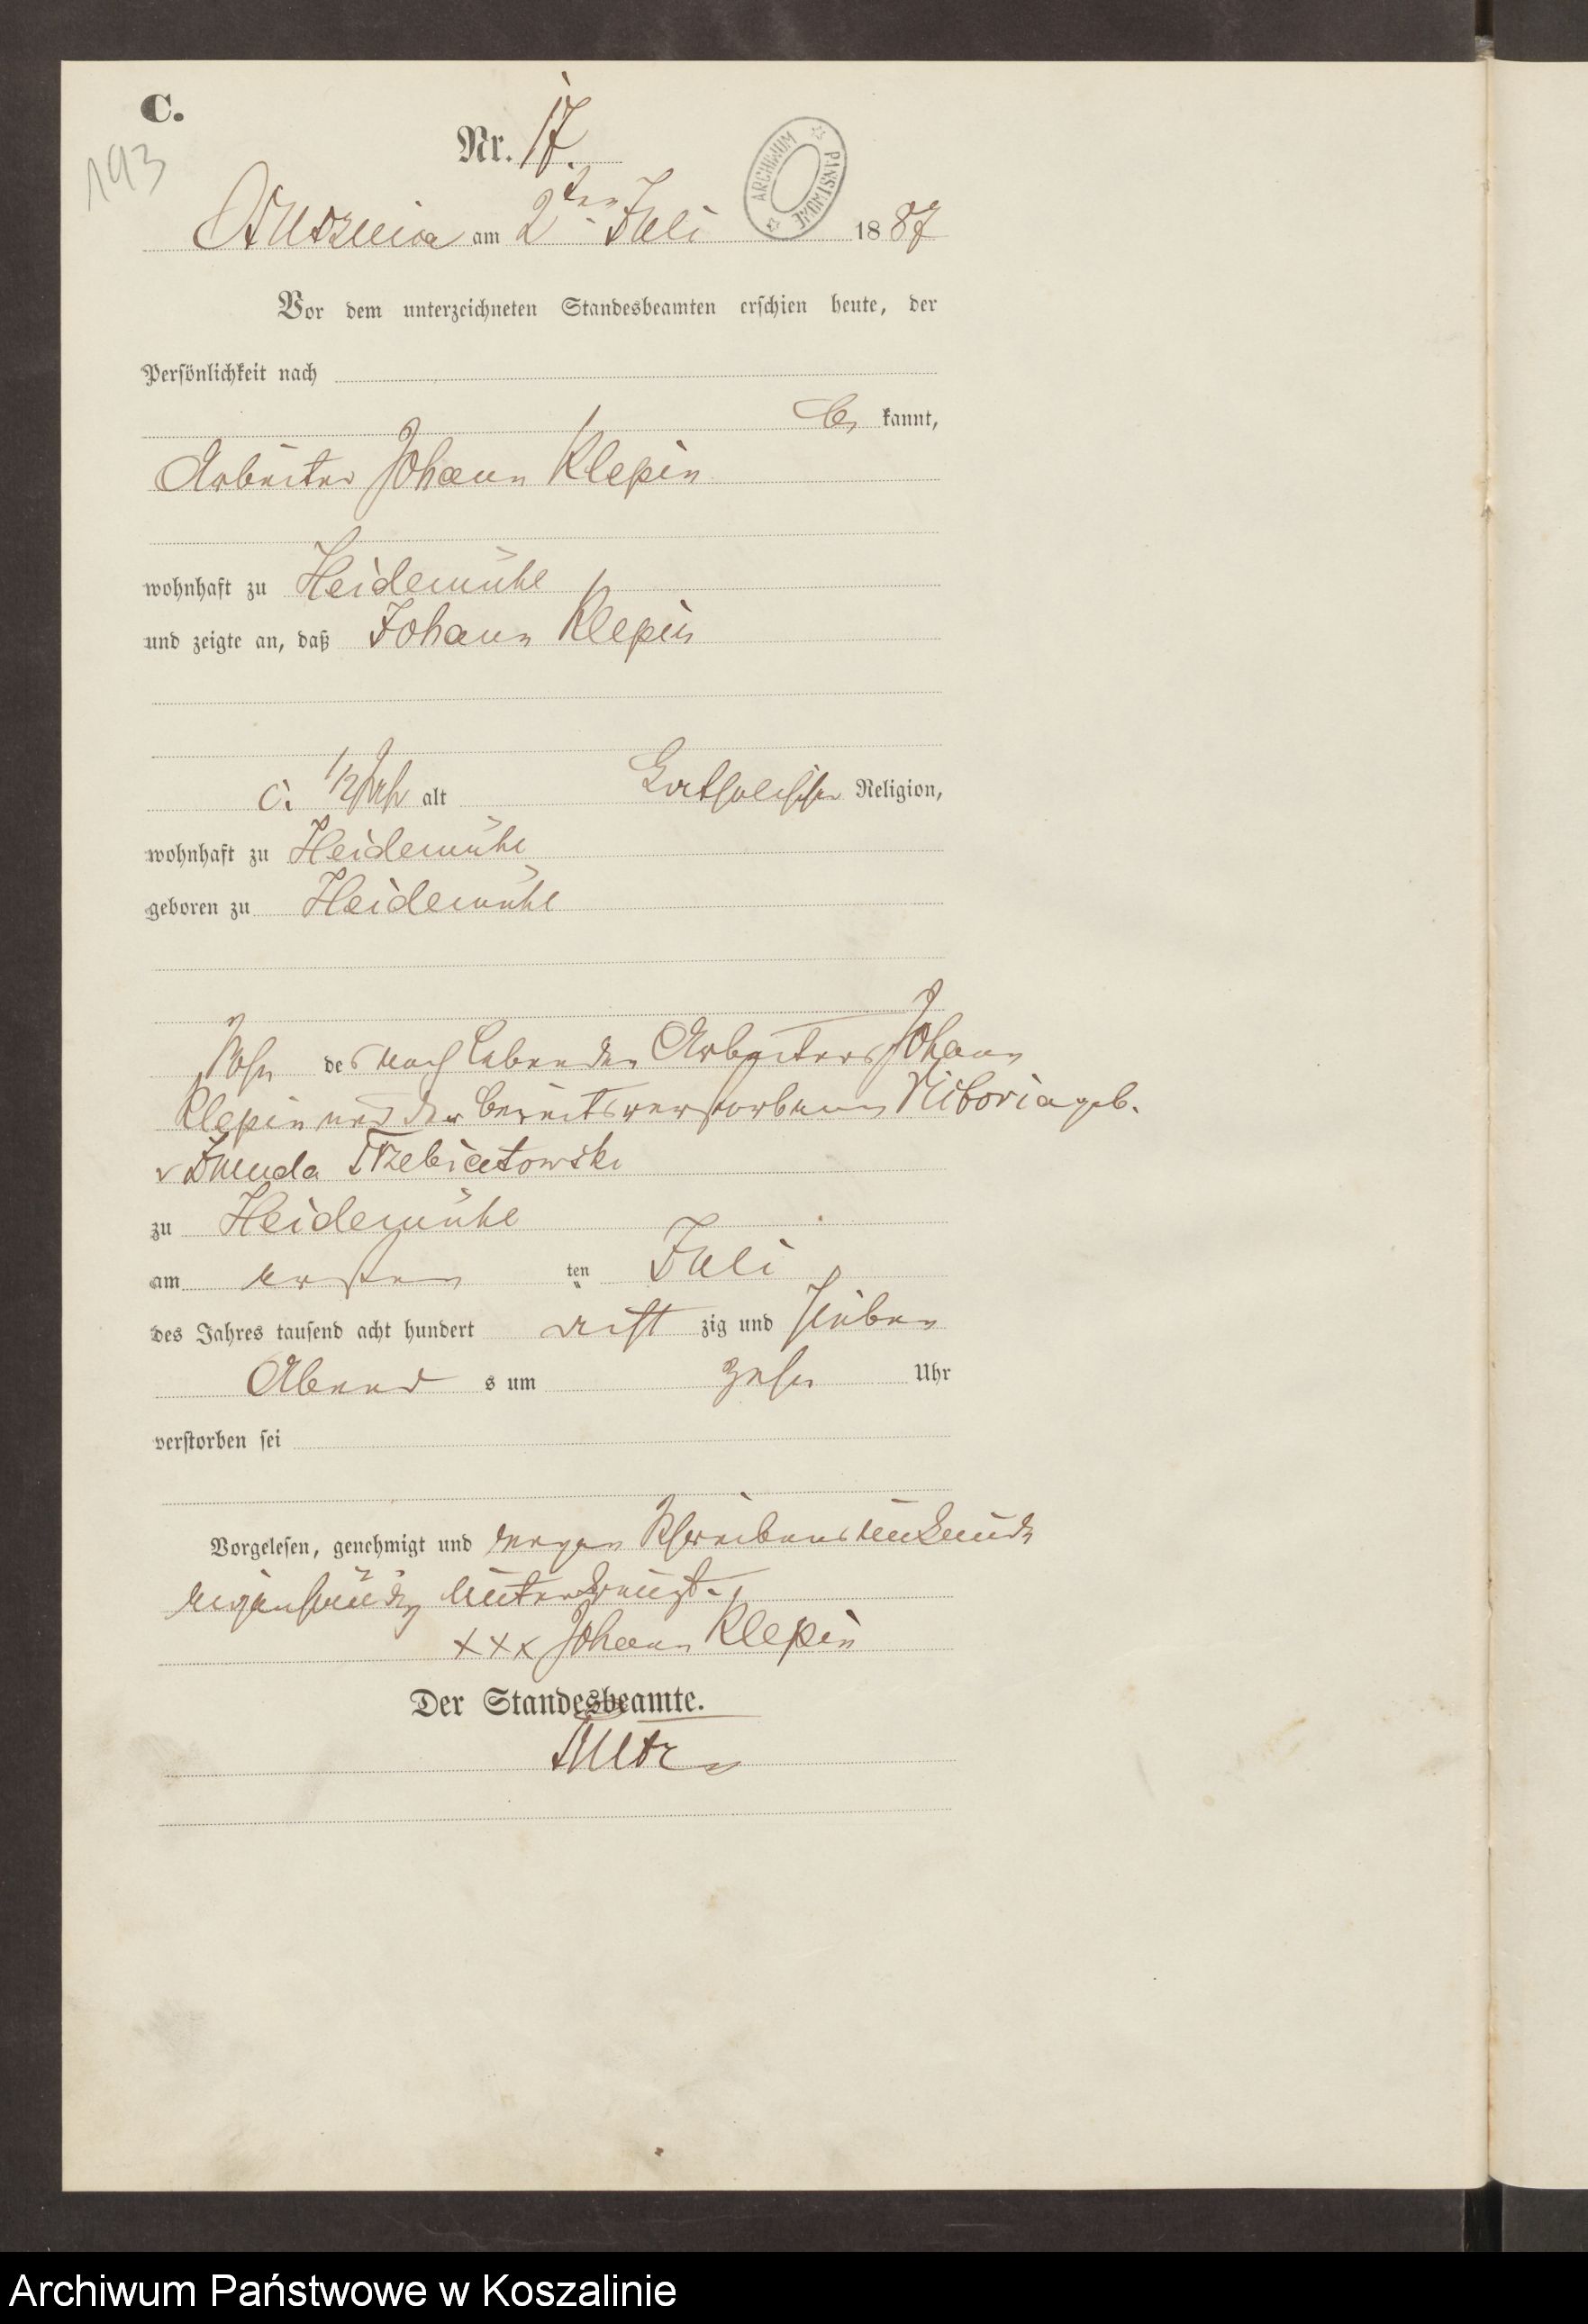 C.
193
Nr. 17.
ARCHIWUM PAŃSTWOWE
am 2ten Juli 1887
Vor dem unterzeichneten Standesbeamten erschien heute, der
Persönlichkeit nach
be kannt,
Arbeiter Johann Klepin
wohnhaft zu Heidemühl
und zeigte an, daß Johann Klepin
c. 1/2 Jahr alt katholischer Religion,
wohnhaft zu Heidemühl
geboren zu Heidemühl
Sohn des noch lebenden Arbeiters Johann
Klepin und der bereits verstorbenen geb.
v
zu Heidemühl
am ersten ten Juli
des Jahres tausend acht hundert acht zig und sieben
Abend s um zehn Uhr
verstorben sei
Vorgelesen, genehmigt und wegen Schreibensunkunde
eigenhändig unterkreuzt.
xxx Johann Klepin
Der Standesbeamte.
Archiwum Państwowe w Koszalinie